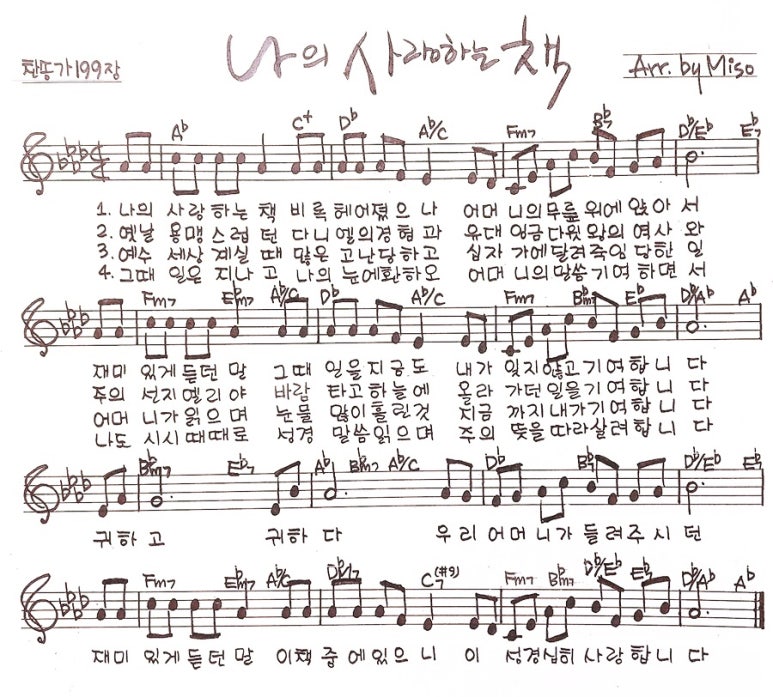 나의 사랑하는 책
찬송가 199장
Arr. by Miso
A♭ C+ D♭ A♭/C Fm7 B♭7 D♭/E♭ E♭7
1. 나의 사랑하는 책 비록 헤어졌으나 어머니의 무릎위에 앉아서
2. 옛날 용맹스럽던 다니엘의 경험과 유대 임금 다윗왕의 역사와
3. 예수 세상 계실 때 많은 고난당하고 십자가에 달려죽임 당한 일
4. 그때 일은 지나고 나의 눈에 환하오 어머니의 말씀 기억하면서
Fm7 E♭m7 A♭/C D♭ A♭/C Fm7 B♭m7 E♭ D♭/A♭ A♭
재미있게 듣던 말 그때 일을 지금도 내가 잊지 않고 기억합니다
주의 선지 엘리야 바람 타고 하늘에 올라가던 일을 기억합니다
어머니가 읽으며 눈물 많이 흘린것 지금까지 내가 기억합니다
나도 시시때때로 성경 말씀 읽으며 주의 뜻을 따라 살려합니다
B♭m7 E♭7 A♭ B♭m7 A♭/C D♭ B♭7 D♭/E♭ E♭7
귀하고 귀하다 우리 어머니가 들려주시던
Fm7 E♭m7 A♭/C C7(#9) Fm7 B♭m7 D♭/E♭ E♭ D♭/A♭ A♭
재미있게 듣던 말 이 책 중에 있으니 이 성경 심히 사랑합니다